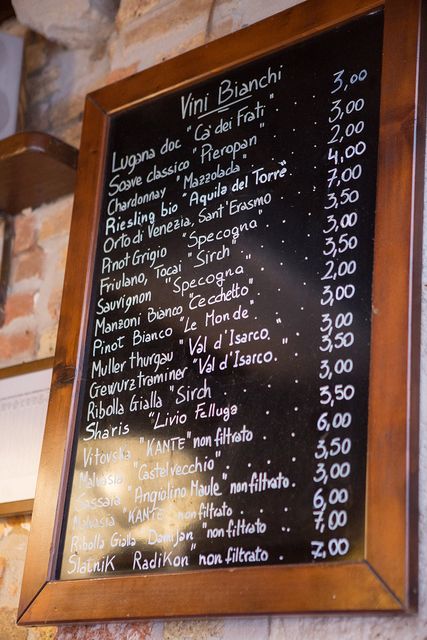 Vini Bianchi
Lugana doc "Ca dei Frati" 3,00
Soave classico "Pieropan" 3,00
Chardonnay "Mazzolada" 2,00
Riesling bio "Aquila del Torre" 4,00
Orto di Venezia, Sant'Erasmo 7,00
Pinot Grigio "Specogna" 3,50
Friulano, Tocai "Sirch" 3,00
Sauvignon "Specogna" 3,50
Manzoni Bianco "Cecchetto" 2,00
Pinot Bianco "Le Monde" 3,00
Muller thurgau "Val d'Isarco." 3,00
Gewurztraminer "Val d'Isarco. 3,50
Ribolla Gialla "Sirch 3,00
Sharis "Livio Felluga 3,50
Vitovska "KANTE" non filtrato 6,00
Malvasia "Castelvecchio" 3,50
Sassaia "Angiolino Maule" non filtrato. 3,00
Malvasia "KANTE" non filtrato 6,00
Ribolla Gialla Damijan "non filtrato 7,00
Slatnik RadiKon" non filtrato 7,00